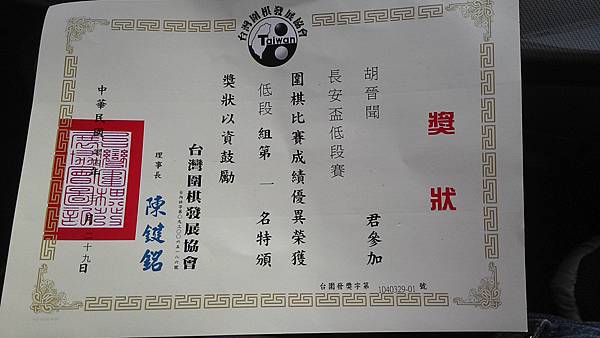 台灣圍棋發展協會
Taiwan
獎狀
胡晉聞 君參加
長安盃低段賽
圍棋比賽成績優異榮獲
低段組第一名特頒
獎狀以資鼓勵
台灣圍棋發展協會
理事長 陳鍵銘
中華民國 年 月二十九日
台圍發獎字第 1040329-01 號